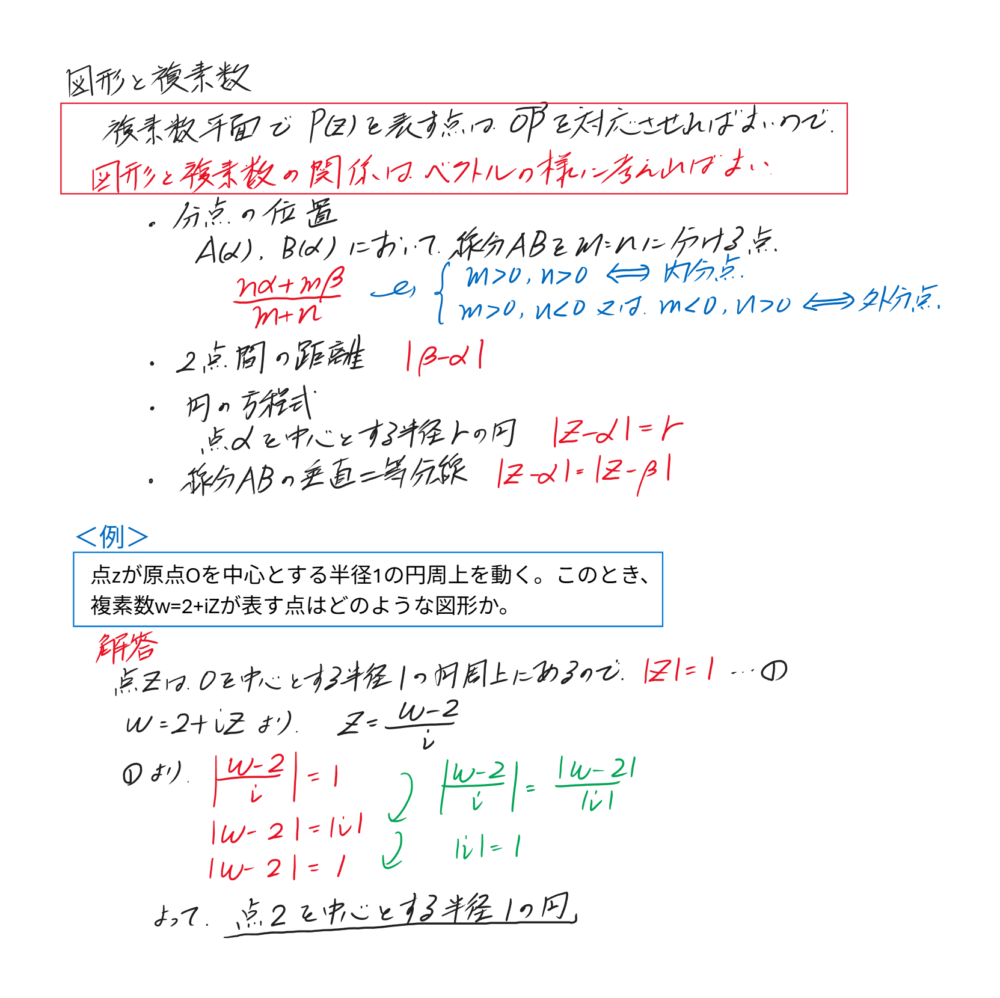 図形と複素数
複素数平面で P(z)を表す点は OP→を対応させればよいので、
図形と複素数の関係は ベクトルの様に考えればよい
・分点の位置
A(α), B(α)において 線分ABをm:nに分ける点
nα+mβ/m+n { m>0, n>0 ⇔ 内分点
m>0, n<0 又は m<0, n>0 ⇔ 外分点
・2点間の距離 |β-α|
・円の方程式
点αを中心とする半径rの円 |z-α|=r
・線分ABの垂直二等分線 |z-α|=|z-β|
<例>
点zが原点Oを中心とする半径1の円周上を動く。このとき、
複素数w=2+iZが表す点はどのような図形か。
解答
点zは、Oを中心とする半径1の円周上にあるので、|z|=1 …①
w=2+iz より、 z=w-2/i
①より、 |w-2/i|=1 |w-2/i|=|w-2|/|i|
|w-2|=|i| |i|=1
|w-2|=1
よって、点2を中心とする半径1の円